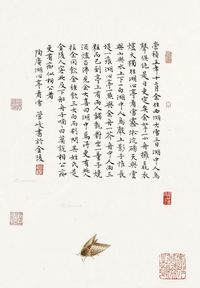 崇禎五年十二月余住西湖大雪三日湖中人鳥
聲俱絕是日更定矣余拏一小舟擁毳衣
爐火獨往湖心亭看雪霧淞沆碭天與雲
與山與水上下一白湖上影子惟長
堤一痕湖心亭一點與余舟一芥舟中人兩三
粒而已到亭上有兩人鋪氈對坐一童子燒
酒爐正沸見余大喜曰湖中焉得更有此人
拉余同飲余強飲三大白而別問其姓氏是
金陵人客此及下船舟子喃喃曰莫說相公癡
更有癡似相公者
陶庵湖心亭看雪 書於金陵